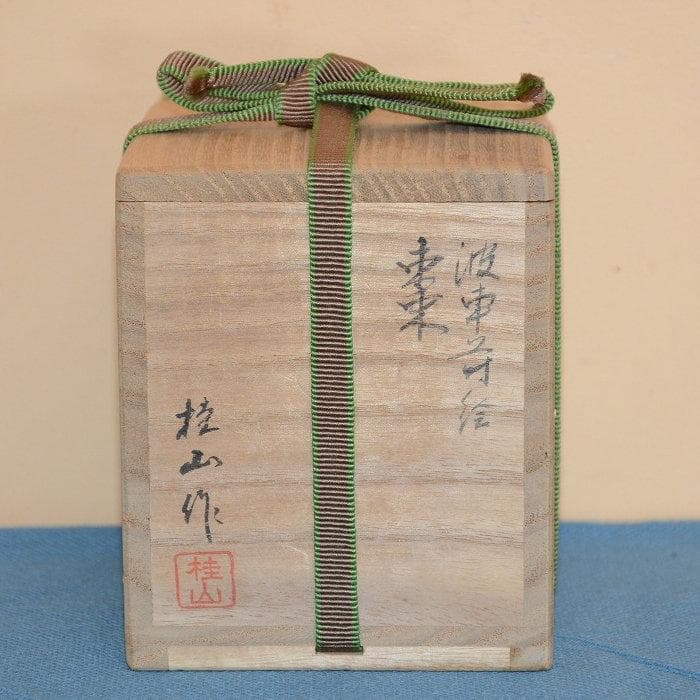 波車蒔絵
棗
桂山作
桂山